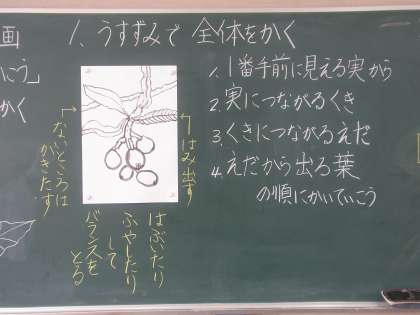 画
にこう」
かく
1. うすずみで 全体をかく
1. 1番手前に見える実から
2. 実につながるくき
3. くきにつながるえだ
4. えだから出る葉
の順にかいていこう
はみ出す
ないところは
がきたす
はぶいたり
ふやしたり
して
バランスを
とる